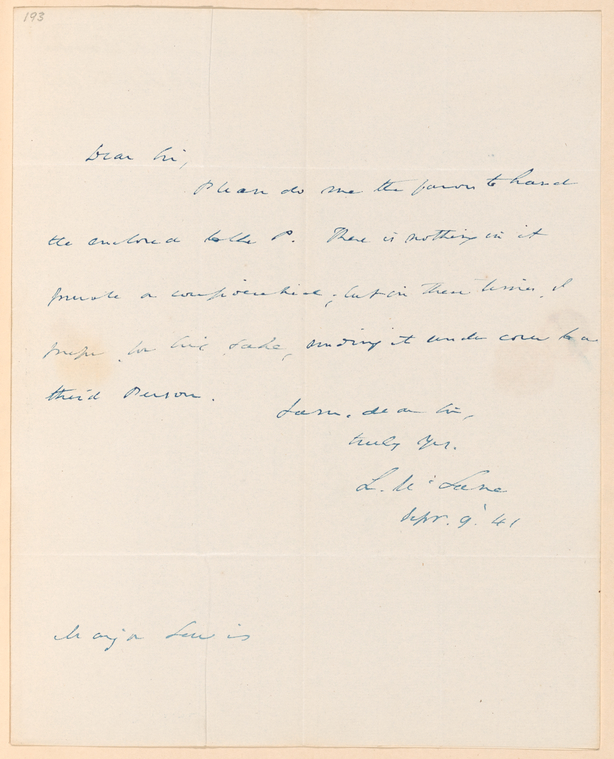 193
Dear Sir,
Please do me the favor to hand
the enclosed to the P. There is nothing in it
private or confidential; but in these times, I
prefer for his sake, sending it under cover to a
third Person.
I am, dear Sir,
truly Yrs.
L. McLane
Sepr. 9. 41
Major Lewis